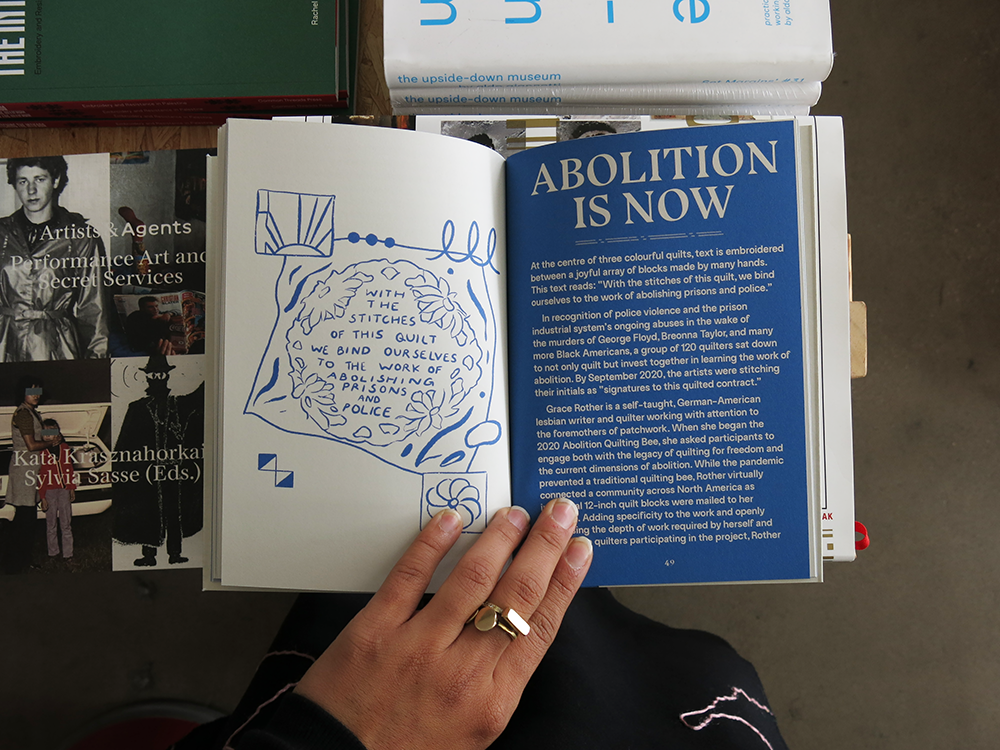 THE
Embroidery and Res
Rachel
the upside-down museum
the upside-down museum
Artists & Agents
Performance Art and
Secret Services
Kata Krasznahorkai
Sylvia Sasse (Eds.)
WITH
THE
STITCHES
OF THIS QUILT
WE BIND OURSELVES
TO THE WORK OF
ABOLISHING
PRISONS
AND
POLICE
ABOLITION
IS NOW
At the centre of three colourful quilts, text is embroidered
between a joyful array of blocks made by many hands.
This text reads: "With the stitches of this quilt, we bind
ourselves to the work of abolishing prisons and police."
In recognition of police violence and the prison
industrial system's ongoing abuses in the wake of
the murders of George Floyd, Breonna Taylor, and many
more Black Americans, a group of 120 quilters sat down
to not only quilt but invest together in learning the work of
abolition. By September 2020, the artists were stitching
their initials as "signatures to this quilted contract."
Grace Rother is a self-taught, German-American
lesbian writer and quilter working with attention to
the foremothers of patchwork. When she began the
2020 Abolition Quilting Bee, she asked participants to
engage both with the legacy of quilting for freedom and
the current dimensions of abolition. While the pandemic
prevented a traditional quilting bee, Rother virtually
connected a community across North America as
12-inch quilt blocks were mailed to her
Adding specificity to the work and openly
the depth of work required by herself and
quilters participating in the project, Rother
49